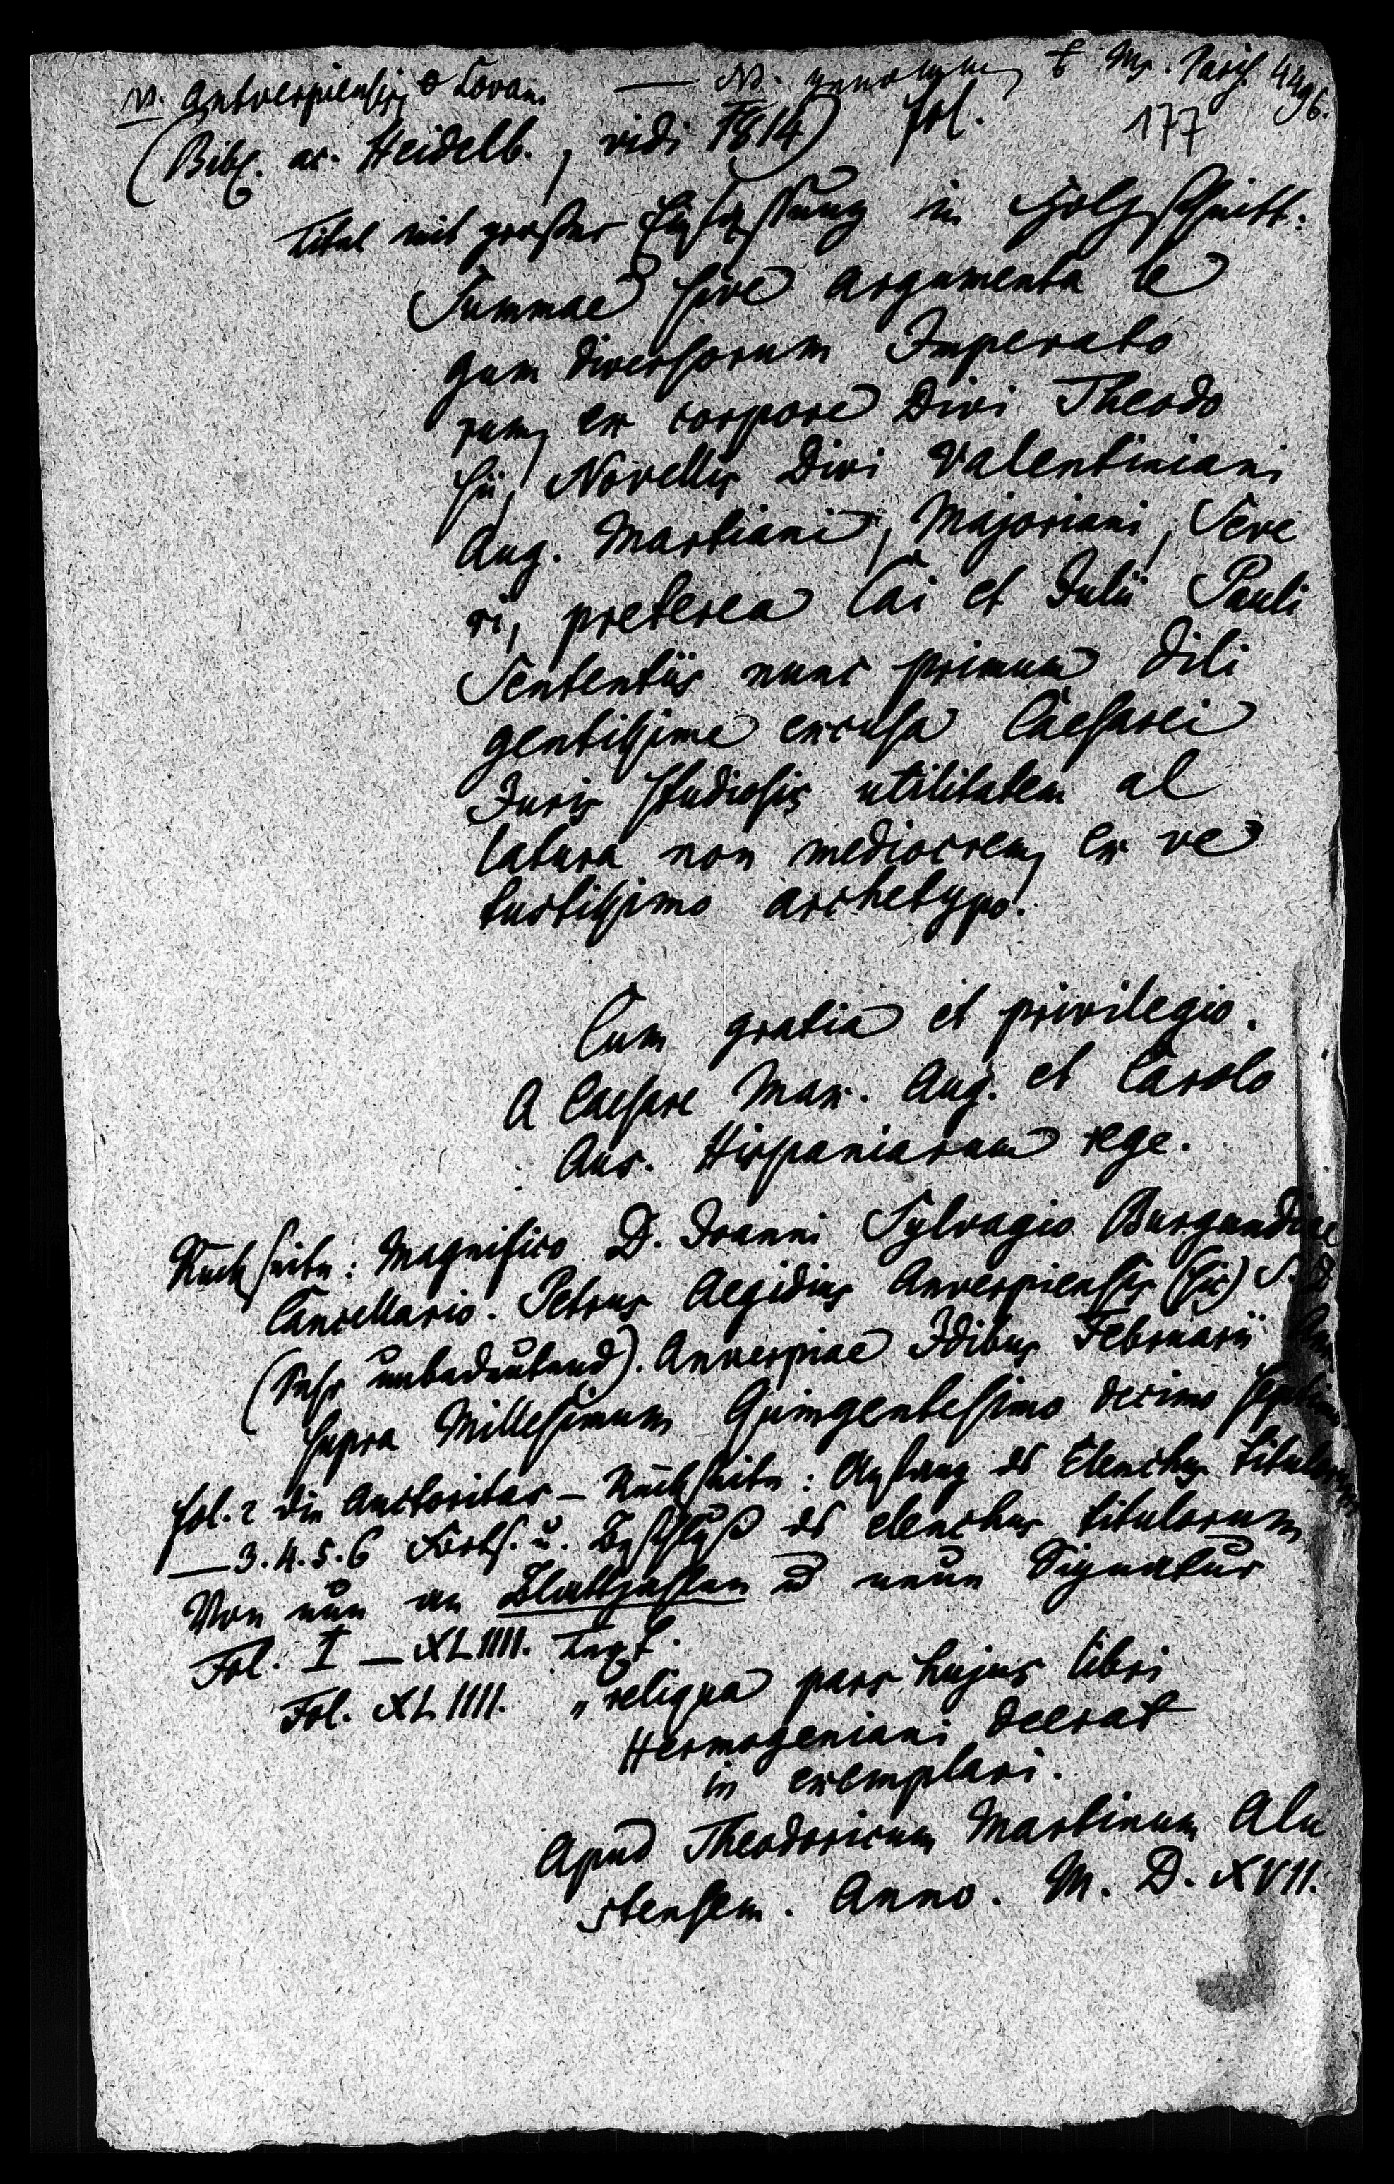 n. Antverpiensis o Lovan. — NB. genommen Ms. Paris. 4496.
(Bibl. ac. Heidelb., vidi 1814) fol. 177
Titel mit großer Einfassung in Holzschnitt:
Summae sive argumenta le
gum diversorum Imperato
rum, ex corpore Divi Theodo
sii, Novellis Divi Valentiniani
Aug. Martiani, Majoriani, Seve
ri, preterea Caii et Julii Pauli
Sententiis nunc primum dili
gentissime excusa Caesarei
Juris studiosis utilitatem al
latura non mediocrem, ex ve
tustissimo archetypo.
Cum gratia et privilegio.
A Caesare Max. Aug. et Carolo
Aus. Hispaniarum rege.
Rückseite: Magnifico D. Joanni Sylvagio Burgundiae
Cancellario. Petrus Aegidius Anverpiensis (sic) S. D.
(sehr unbedeutend). Anverpiae Idibus Februarii Ann
supra Millesimum Quingentesimo decimo septimo.
fol. 2 die Auctoritas — Rückseite: Anfang des Elenchus titulorum
— 3. 4. 5. 6 Forts. u. Beschluß des elenchus titulorum
Von nun an Blattzahlen u neue Signatur
Fol. I — XLIIII. Text.
Fol. XLIIII. „reliqua pars hujus libri
Hermogeniani deerat
in exemplari.
Apud Theodoricum Martinum Alu
stensem. Anno. M. D. XVII.